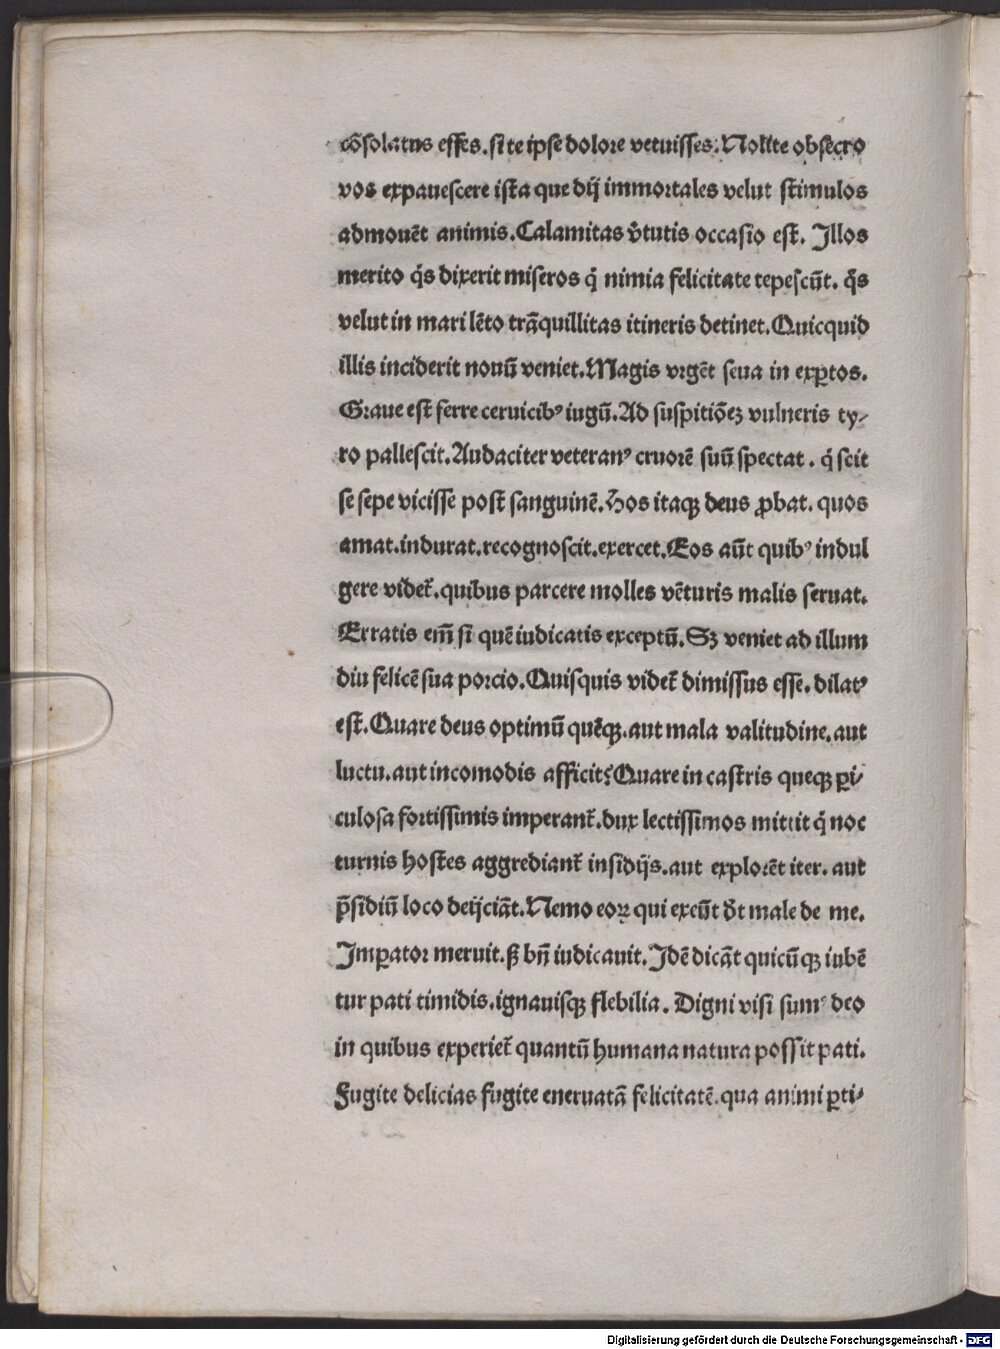 cõsolatus esses.si te ipse dolore vetuisses.Nolite obsecro
vos expauescere ista que dij immortales velut stimulos
admouẽt animis.Calamitas v̾tutis occasio est. Illos
merito q̃s dixerit miseros q̃ nimia felicitate tepescũt. q̃s
velut in mari lẽto trãquillitas itineris detinet.Quicquid
illis inciderit nouũ veniet.Magis vrgẽt seua in exꝑtos.
Graue est ferre ceruicibꝰ iugũ.Ad suspitiõeꝫ vulneris ty-
ro pallescit.Audaciter veteranꝰ cruorẽ suũ spectat . q̃ scit
se sepe vicisse post sanguinẽ.Hos itaqꝫ deus ꝓbat. quos
amat.indurat.recognoscit.exercet.Eos aũt quibꝰ indul
gere videt̃.quibus parcere molles vẽturis malis seruat.
Erratis em̃ si quẽ iudicatis exceptũ.Sꝫ veniet ad illum
diu felicẽ sua porcio.Quisquis videt̃ dimissus esse. dilatꝰ
est.Quare deus optimũ quẽqꝫ.aut mala valitudine.aut
luctu.aut incomodis afficit?Quare in castris queqꝫ ꝑi-
culosa fortissimis imperant̃.dux lectissimos mittit q̃ noc
turnis hostes aggrediant̃ insidijs.aut explorẽt iter. aut
p̃sidiũ loco deijciãt.Nemo eoꝝ qui exeũt d̃t male de me.
Imꝑator meruit.ẞ bñ iudicauit.Idẽ dicãt quicũqꝫ iubẽ
tur pati timidis.ignauisqꝫ flebilia. Digni visi sumꝰ deo
in quibus experiet̃ quantũ humana natura possit pati.
Fugite delicias fugite eneruatã felicitatẽ.qua animi ꝑti-
Digitalisierung gefördert durch die Deutsche Forschungsgemeinschaft - DFG